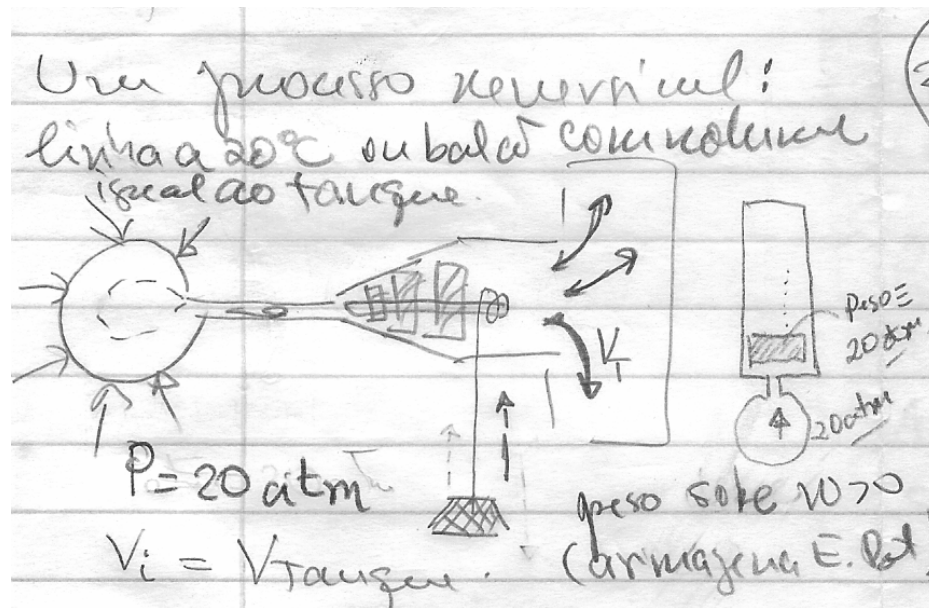 Um processo reversível:
linha a 20°C ou balão com volume
igual ao tanque.
peso ≡
20 atm
V_T
20 atm
P = 20 atm
peso sobe W>0
V_i = V_Tanque.
(armazena E. Pot